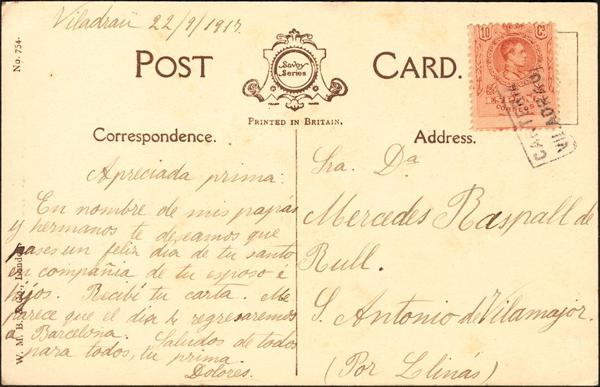 Viladrau 22/9/1917.
No. 754.
POST CARD.
Savoy
Series
TRADE MARK
PRINTED IN BRITAIN.
10 Cs.
CARTERIA
VILADRAU
Correspondence.
Address.
Apreciada prima:
En nombre de mis papas
y hermanos te deseamos que
pases un feliz dia de tu santo
en compañia de tu esposo e
hijos. Recibí tu carta. Me
parece que el dia 4 regresaremos
a Barcelona. Saludos de todos
para todos, tu prima.
Dolores.
Sra. Da
Mercedes Raspall de
Rull.
S. Antonio de Vilamajor.
(Por Llinás)
W. M. B. London